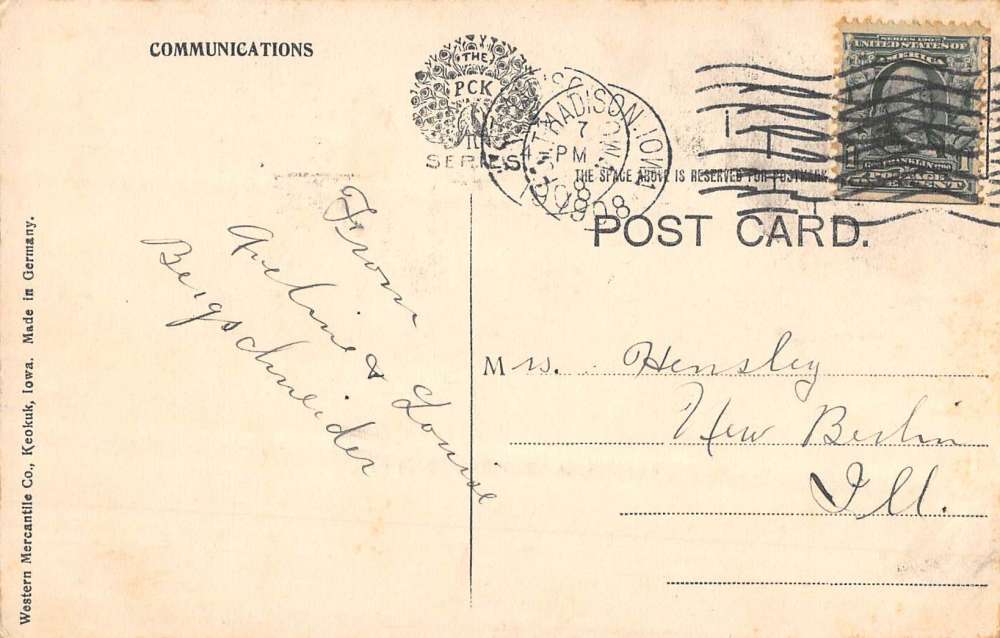 COMMUNICATIONS
THE
PCK
SERIES
MADISON, IOWA
7
4 PM
1908
SERIES 1902
UNITED STATES OF
AMERICA
FRANKLIN
THE SPACE ABOVE IS RESERVED FOR POSTMARK
POST CARD.
From
& Louise
Bergschneider
Mrs. Hensley
New Berlin
Ill.
Western Mercantile Co., Keokuk, Iowa. Made in Germany.